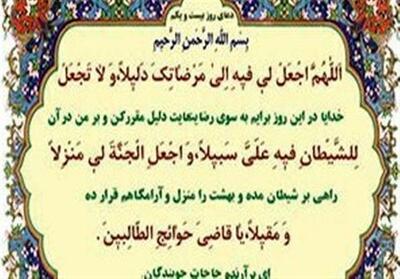 دعای روز بیست و یکم
بِسْمِ اللهِ الرَّحْمنِ الرَّحیْمِ
اَللّهُمَّ اجْعَلْ لی فیهِ اِلیٰ مَرْضاتِکَ دَلیلاً،وَ لا تَجْعَلْ
خدایا در این روز برایم به سوی رضایتعایت دلیل مقررکن و بر من در آن
لِلشَّیْطانِ فیهِ عَلَیَّ سَبیلاً،وَ اجْعَلِ الْجَنَّةَ لی مَنْزِلاً
راهی بر شیطان مده و بهشت را منزل و آرامگاهم قرار ده
وَ مَقیلاً،یا قاضِیَ حَوائِجِ الطّالِبینَ.
ای برآرنده حاجات جویندگان.